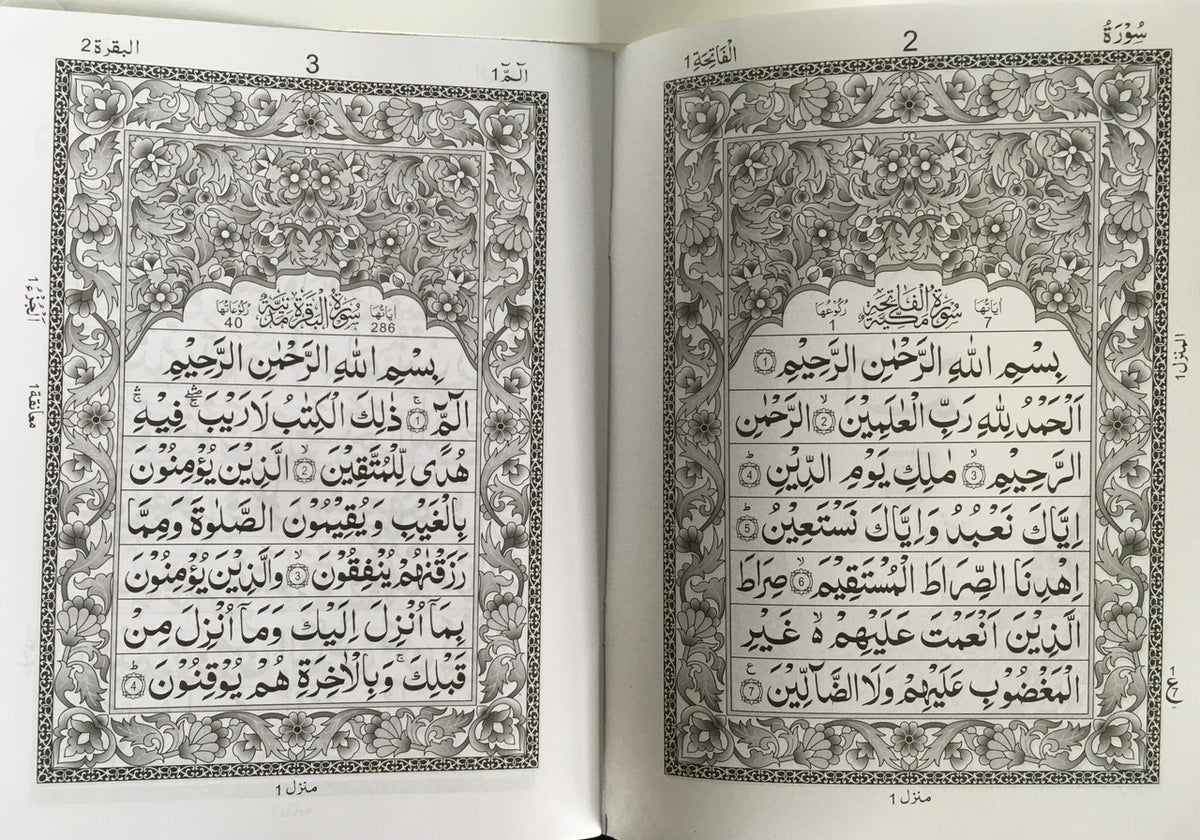 سُوْرَةُ
2
الْفَاتِحَةِ 1
اٰيَاتُهَا 7
سُوْرَةُ الْفَاتِحَةِ مَكِّيَّةٌ
رُكُوْعُهَا 1
بِسْمِ اللّٰهِ الرَّحْمٰنِ الرَّحِيْمِ ۝1
اَلْحَمْدُ لِلّٰهِ رَبِّ الْعٰلَمِيْنَ ۝2ۙ الرَّحْمٰنِ
الرَّحِيْمِ ۝3ۙ مٰلِكِ يَوْمِ الدِّيْنِ ۝4ؕ
اِيَّاكَ نَعْبُدُ وَاِيَّاكَ نَسْتَعِيْنُ ۝5ؕ
اِهْدِنَا الصِّرَاطَ الْمُسْتَقِيْمَ ۝6ۙ صِرَاطَ
الَّذِيْنَ اَنْعَمْتَ عَلَيْهِمْ ۙ۬ غَيْرِ
الْمَغْضُوْبِ عَلَيْهِمْ وَلَا الضَّآلِّيْنَ ۝7ع
المنزل 1
ع
منزل 1
الٓمّٓ 1
3
البقرة 2
اٰيَاتُهَا 286
سُوْرَةُ الْبَقَرَةِ مَدَنِيَّةٌ
رُكُوْعَاتُهَا 40
بِسْمِ اللّٰهِ الرَّحْمٰنِ الرَّحِيْمِ
الٓمّٓ ۝1ۚ ذٰلِكَ الْكِتٰبُ لَا رَيْبَ ۖۛۚ فِيْهِ ۛۚ
هُدًى لِّلْمُتَّقِيْنَ ۝2ۙ الَّذِيْنَ يُؤْمِنُوْنَ
بِالْغَيْبِ وَيُقِيْمُوْنَ الصَّلٰوةَ وَمِمَّا
رَزَقْنٰهُمْ يُنْفِقُوْنَ ۝3ۙ وَالَّذِيْنَ يُؤْمِنُوْنَ
بِمَآ اُنْزِلَ اِلَيْكَ وَمَآ اُنْزِلَ مِنْ
قَبْلِكَ ۚ وَبِالْاٰخِرَةِ هُمْ يُوْقِنُوْنَ ۝4ؕ
اَلْجُزْءُ 1
معانقة 1
منزل 1